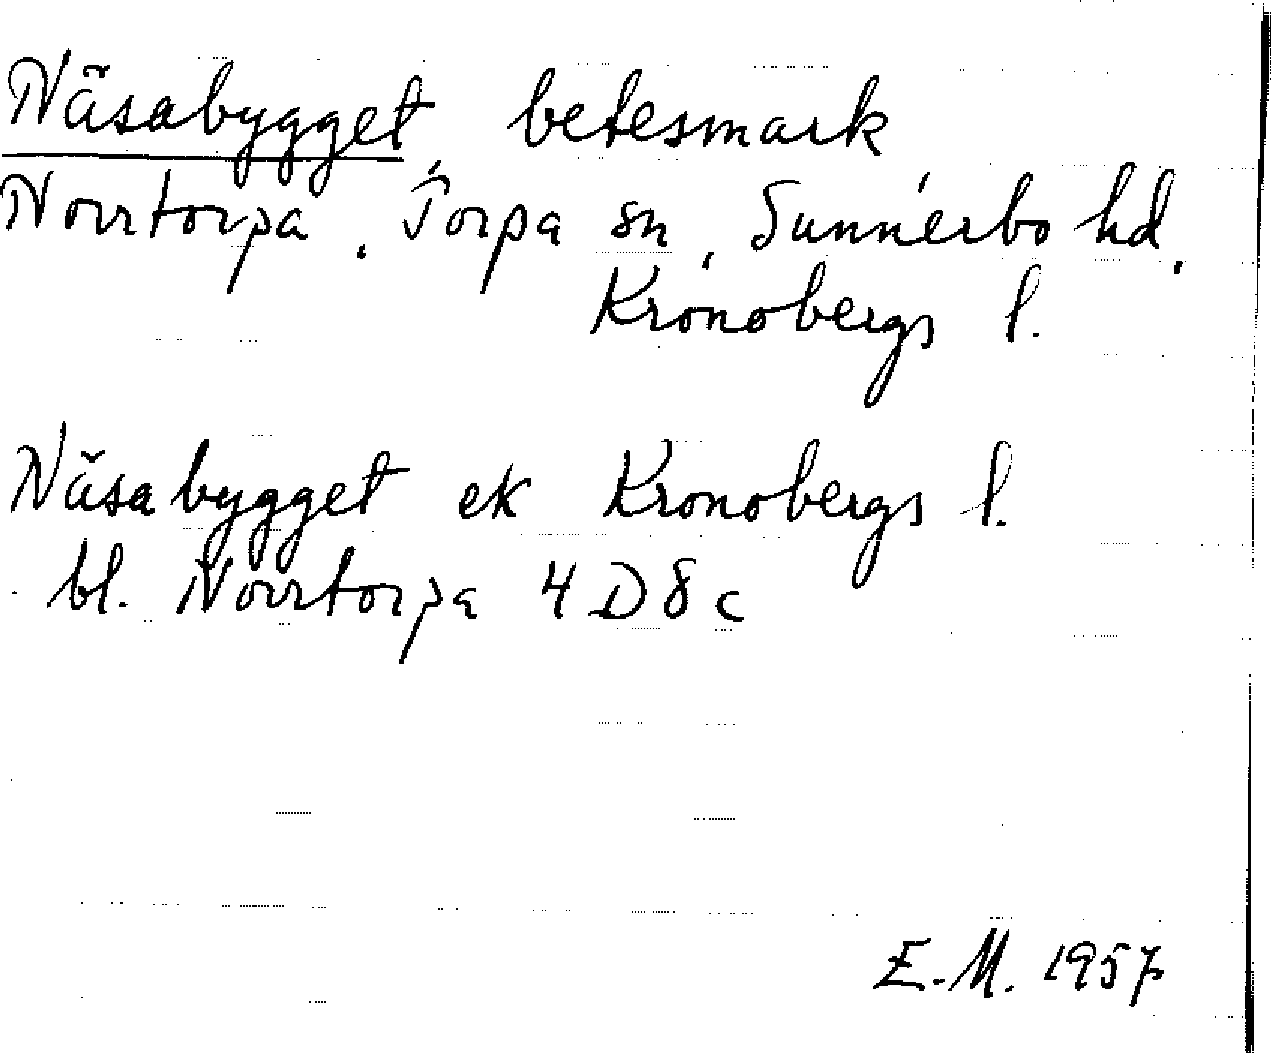 Näsabygget, betesmark
Norrtorpa, Torpa sn, Sunnerbo hd,
Kronobergs l.
Näsabygget ek Kronobergs l.
bl. Norrtorpa 4 D 8 c
E.M. 1957